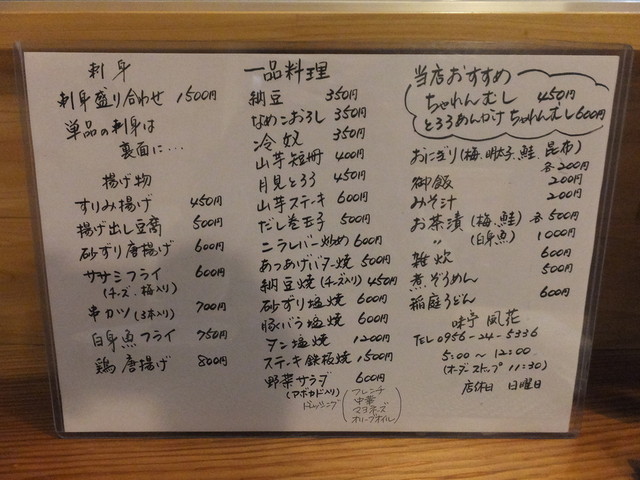 刺身
刺身盛り合わせ 1500円
単品の刺身は
裏面に…
揚げ物
すりみ揚げ 450円
揚げ出し豆腐 500円
砂ずり唐揚げ 600円
ササミフライ 600円
(チーズ、梅入り)
串カツ(3本入り) 700円
白身魚フライ 750円
鶏唐揚げ 800円
一品料理
納豆 350円
なめこおろし 350円
冷奴 350円
山芋短冊 400円
月見とろろ 450円
山芋ステーキ 600円
だし巻玉子 500円
ニラレバー炒め 600円
あつあげバター焼 500円
納豆焼(チーズ入り) 450円
砂ずり塩焼 600円
豚バラ塩焼 600円
タン塩焼 1200円
ステーキ鉄板焼 1500円
野菜サラダ 600円
(アボカド入り)
ドレッシング
フレンチ
中華
マヨネーズ
オリーブオイル
当店おすすめ
ちゃわんむし 450円
とろろめんかけちゃわんむし 600円
おにぎり(梅、明太子、鮭、昆布)
各200円
御飯 200円
みそ汁 200円
お茶漬(梅、鮭)各500円
〃 (白身魚) 1000円
雑炊 600円
煮ぞうめん 500円
稲庭うどん 600円
味亭 風花
TEL 0956-24-5336
5:00〜12:00
(オーダーストップ 11:30)
店休日 日曜日